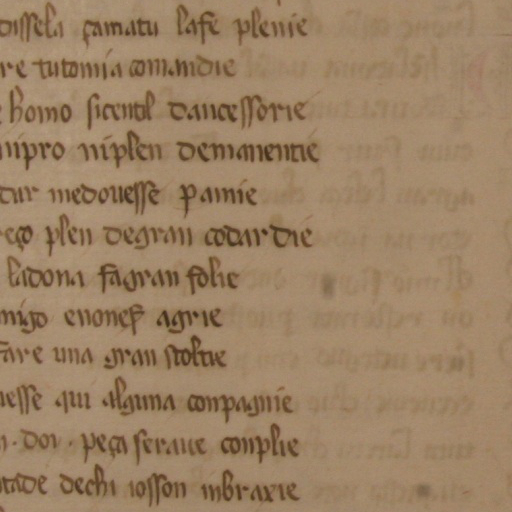 dissela çamatu lase plenie
re tutomia comandie
homo sicentil dancessorie
nipro niplen demanentie
dur medouesse pamie
eço plen degran codardie
ladona fagran folie
migo enones agrie
fare una gran stoltie
esse qui alguna conpagnie
dou peça seraue conplie
tade dechi iosson inbraxie